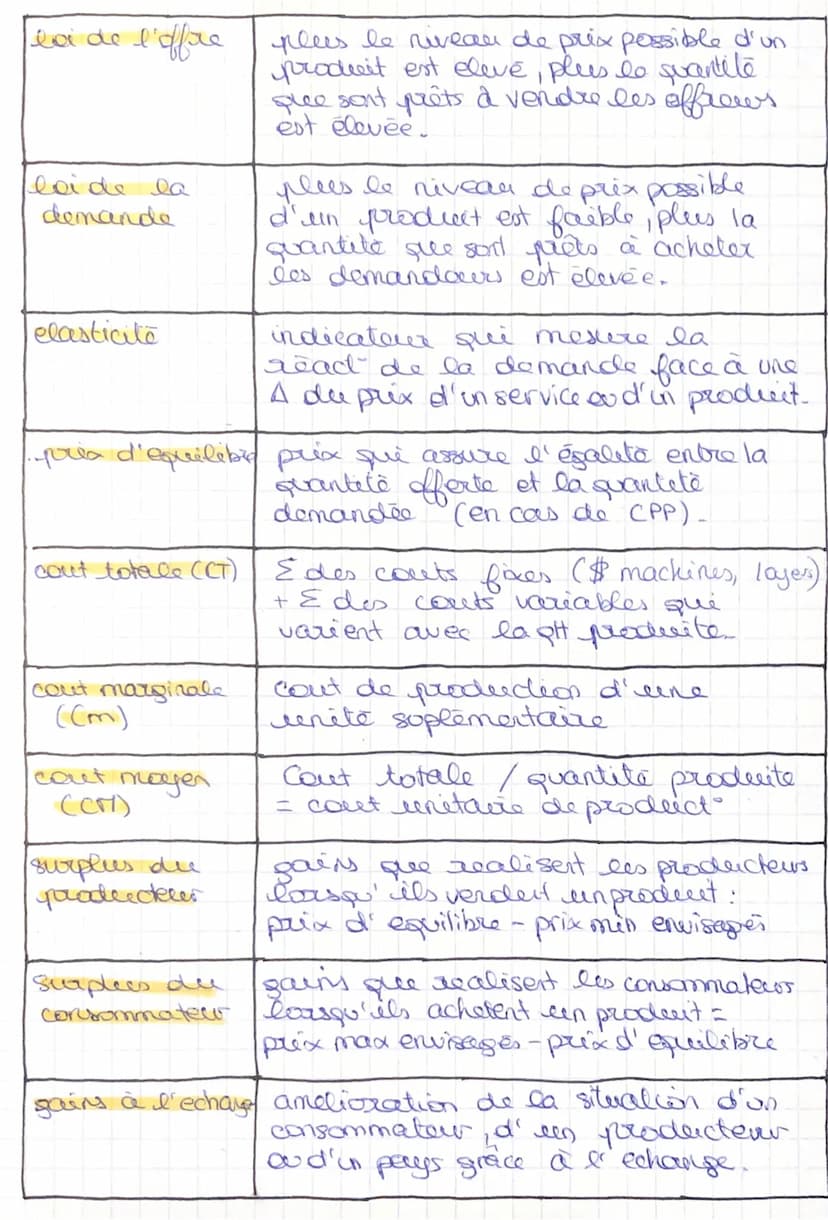 loi de l'offre
plus le niveau de prix possible d'un
produit est elevé, plus la quantité
que sont prêts à vendre les offreurs
est élevée.
loi de la
demande
plus le niveau de prix possible
d'un produit est faible, plus la
quantité que sont prêts à acheter
les demandeurs est élevée.
elasticité
indicateur qui mesure la
réact° de la demande face à une
Δ du prix d'un service ou d'un produit.
prix d'equilibre
prix qui assure l'égalité entre la
quantité offerte et la quantité
demandée (en cas de CPP).
cout totale (CT)
Σ des couts fixes ($ machines, loyer)
+ Σ des couts variables qui
varient avec la qtt produite.
cout marginale
(Cm)
cout de production d'une
unité soplémentaire
cout moyen
(CM)
Cout totale / quantité produite
= cout unitaire de product°
surplus du
producteur
gains que realisent les producteurs
lorsqu'ils vendent un produit :
prix d'equilibre - prix min envisagés
surplus du
consommateur
gains que realisent les consommateurs
lorsqu'ils achetent un produit =
prix max envisagés - prix d'equilibre
gains à l'echange
amelioration de la situation d'un
consommateur, d'un producteur
ou d'un pays grâce à l'echange.